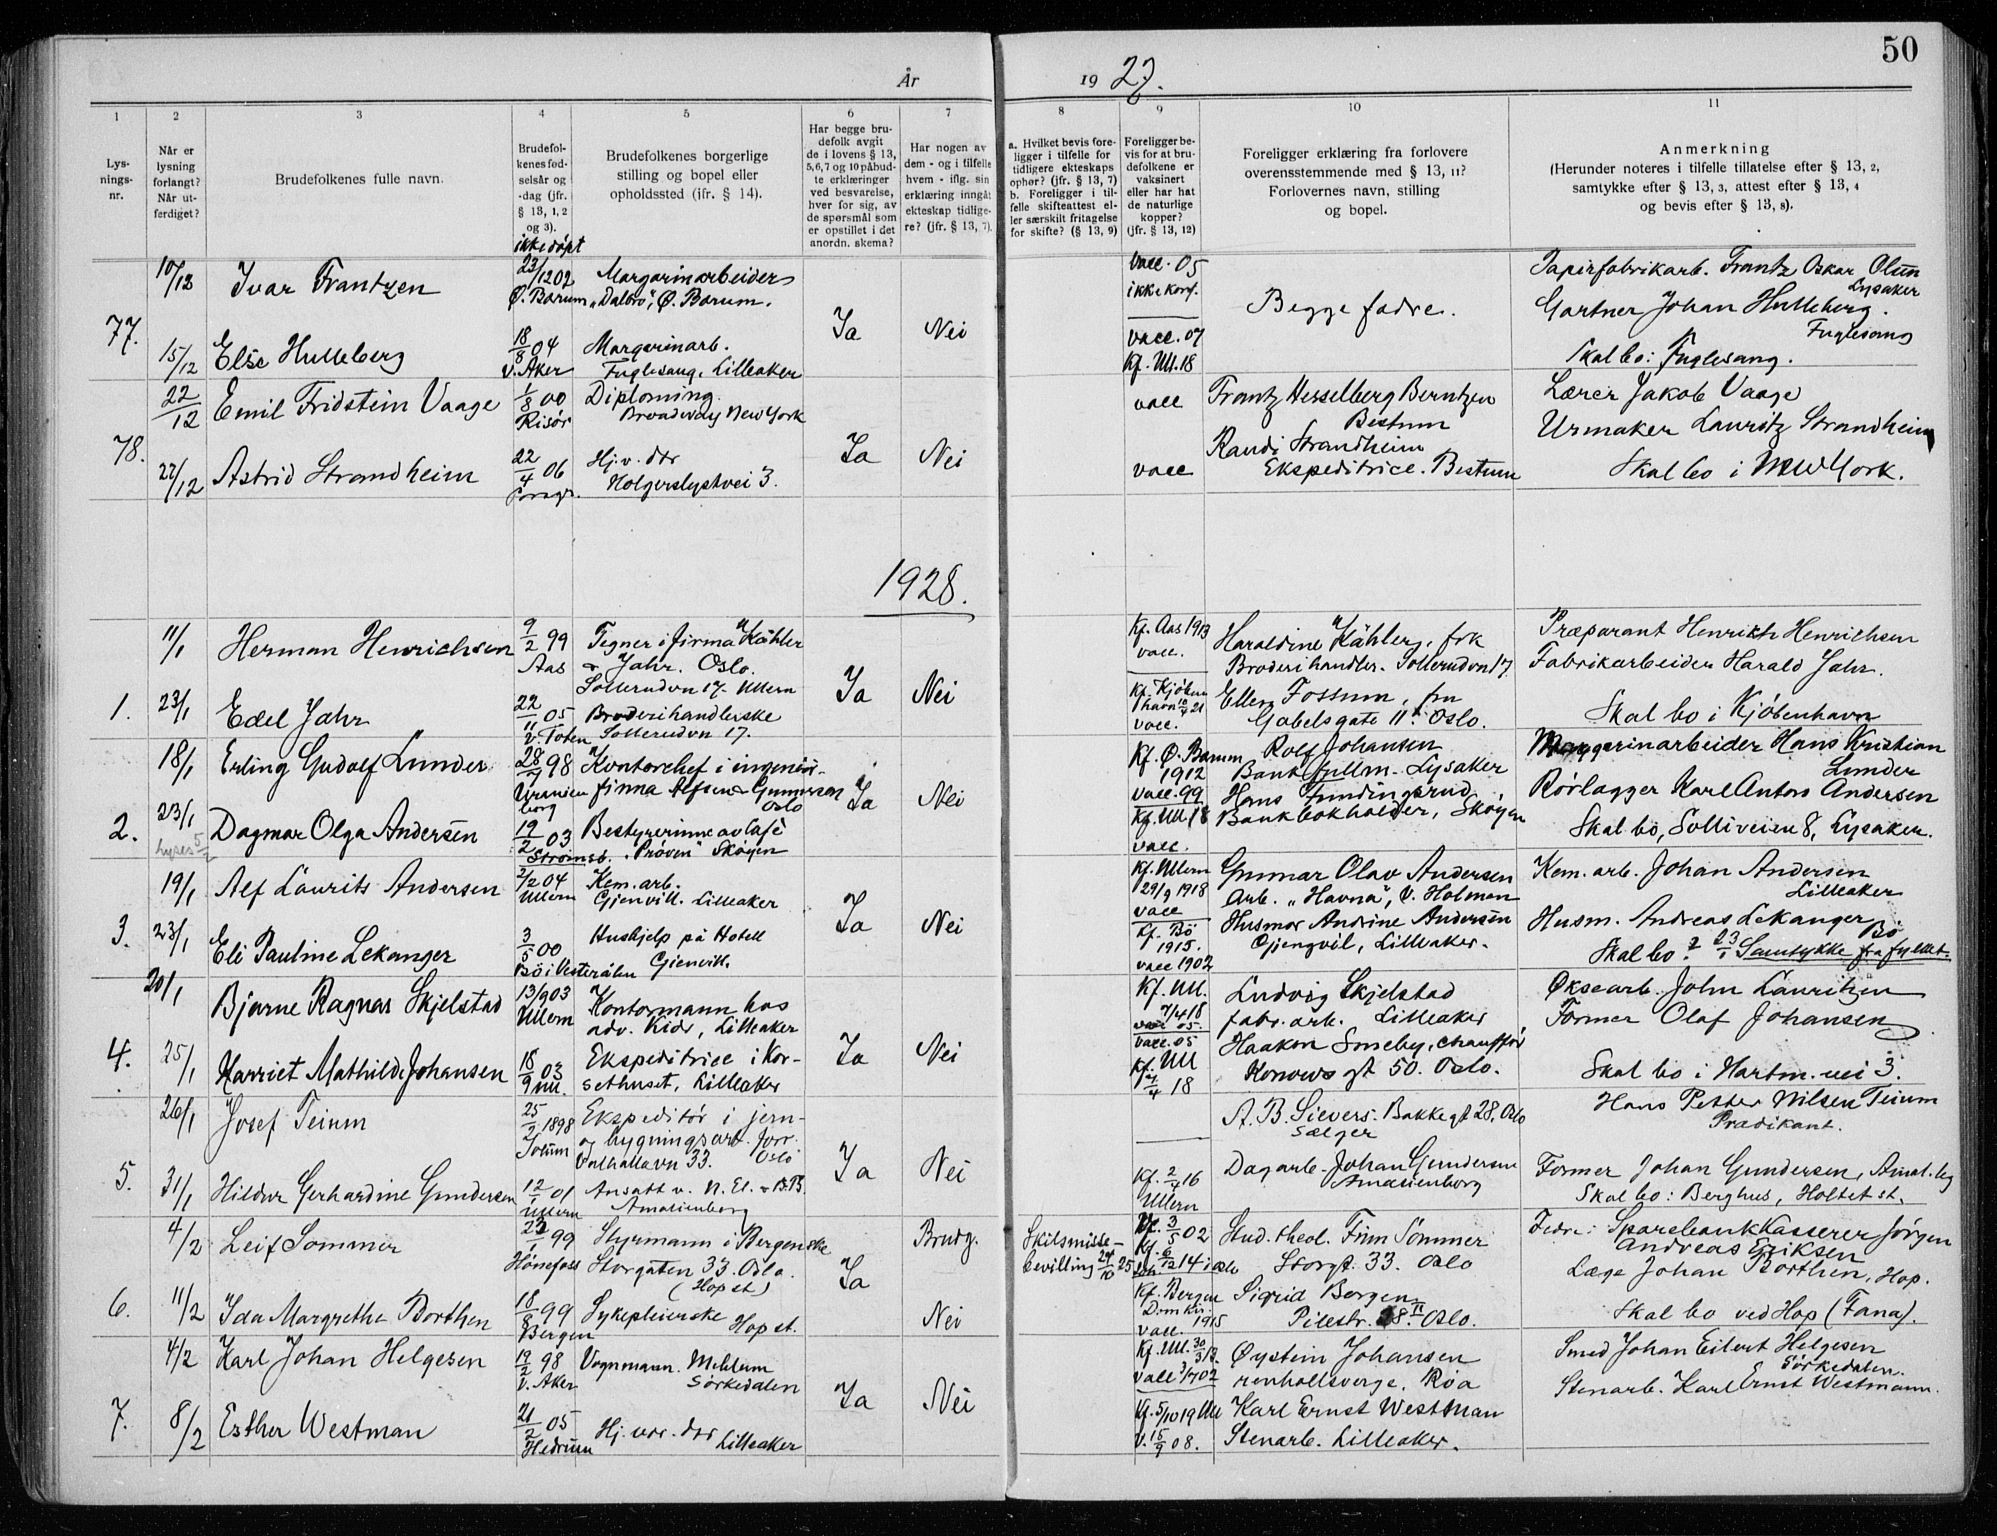 50
År 1927.
1
2
3
4
5
6
7
8
9
10
11
Lysningsnr.
Når er lysning forlangt? Når utferdiget?
Brudefolkenes fulle navn.
Brudefolkenes fødselsår og -dag (jfr. § 13, 1, 2 og 3).
Brudefolkenes borgerlige stilling og bopel eller opholdssted (jfr. § 14).
Har begge brudefolk avgit de i lovens § 13, 5,6,7 og 10 påbudte erklæringer ved besvarelse, hver for sig, av de spørsmål som er opstillet i det anordn. skema?
Har nogen av dem - og i tilfelle hvem - iflg. sin erklæring inngåt ekteskap tidligere? (jfr. § 13, 7).
a. Hvilket bevis foreligger i tilfelle for tidligere ekteskaps ophør? (jfr. § 13, 7) b. Foreligger i tilfelle skifteattest eller særskilt fritagelse for skifte? (§ 13, 9)
Foreligger bevis for at brudefolkene er vaksinert eller har hat de naturlige kopper? (jfr. § 13, 12)
Foreligger erklæring fra forlovere overensstemmende med § 13, 11? Forlovernes navn, stilling og bopel.
Anmerkning
(Herunder noteres i tilfelle tillatelse efter § 13, 2, samtykke efter § 13, 3, attest efter § 13, 4 og bevis efter § 13, 8).
77.
10/12 Ivar Frantzen ikke døpt 23/1202 Ø. Bærum Margarinarbeider "Dalbo", Ø. Bærum.
Ja Nei
vacc. 05 ikke konf.
Begge fædre.
Papirfabrikarb. Frantz Oskar Olsen Lysaker
15/12 Else Hulleberg 18/8 04 V. Aker Margarinarb. Fuglesang, Lilleaker
vacc. 07 Kf. Ull. 18
Gartner Johan Hulleberg. Fuglesang
Skal bo: Fuglesang.
78.
22/12 Emil Fridstein Vaage 1/8 00 Risør Diploming. Broadway New York
Ja Nei
vacc
Frantz Hesselberg Berntzen Bestum
Lærer Jakob Vaage
22/12 Astrid Strandheim 22/4 06 Porsgr. Hj. v. dtr Holgerslystvei 3.
vacc
Randi Strandheim Ekspeditrice. Bestum
Urmaker Lauritz Strandheim
Skal bo i New York.
1928.
1.
11/1 Herman Henrichsen 9/2 99 Aas Tegner i firma Kähler & Jahr. Oslo. Sollerudvn 17. Ullern
Ja Nei
Kf. Aas 1913 vacc.
Haraldine Kähler, frk Broderihandler. Sollerudvn 17.
Præparant Henrik Henrichsen
23/1 Edel Jahr 22/11 05 V. Toten Broderihandlerske Sollerudvn 17.
Kf. Kjøbenhavn 10/4 21 vacc.
Ellen Fossum, fru Gabelsgate 11 Oslo.
Fabrikarbeider Harald Jahr.
Skal bo i Kjøbenhavn
2.
18/1 Erling Gudolf Lunder 28/7 98 Kontorchef i ingeniørfirma Alfsen & Gunnerson Oslo
Ja Nei
Kf. Ø. Bærum 1912 vacc. 99
Rolf Johansen Bankfullm. Lysaker
Margarinarbeider Hans Kristian Lunder
23/1 Dagmar Olga Andersen 19/2 03 Strømsø. Bestyrerinne av Café "Prøven" Skøyen
Kf. Ull. 18 vacc.
Bankbokholder, Skøyen
Rørlægger Karl Anton Andersen
Skal bo, Solliveien 8, Lysaker.
3.
19/1 Alf Laurits Andersen 2/2 04 Ullern Kem. arb. Gjenvill. Lilleaker
Ja Nei
Kf. Ullern 29/9 1918 vacc
Gunnar Olav Andersen Arb. "Havna", V. Holmen
Kem. arb. Johan Andersen Lilleaker
23/1 Eli Pauline Lekanger 3/5 00 Bö i Vesterålen Hushjelp på Hotell Gjenvill.
Kf. Bö 1915. vacc 1902
Husmor Andrine Andersen Gjengvil, Lilleaker.
Husm. Andreas Lekanger Bö
Skal bo? 23/1 Samtykke fra fylket.
4.
20/1 Bjarne Ragnar Skjelstad 13/903 Ullern Kontormann hos adv. Kiær, Lilleaker
Ja Nei
Kf. Ull. 7/4 18 vacc 05.
Ludvig Skjelstad fabr. arb. Lilleaker
Øksearb. John Lauritzen
25/1 Harriet Mathilde Johansen 18/9 03 Ull. Ekspeditrice i Korsethuset, Lilleaker
vacc. 05 Kf. Ull 7/4 18
Haakon Smeby, chauffør Konows gt 50. Oslo.
Former Olaf Johansen
Skal bo i Hartm. vei 3.
5.
26/1 Josef Teium 25/2 1898 Ekspeditør i jern- og bygningsart. forr. Valhallavn 33. Oslo
Ja Nei
A. B. Sievers. Bakkegt 28, Oslo Sælger
Hans Petter Nilsen Teium Prædikant.
31/1 Hildur Gerhardine Gundersen 12/1 01 Ullern Ansatt v. N. El. & B.B. Amalienborg
Kf. 2/4 16 Ullern
Dagarb. Johan Gundersen Amalienborg
Former Johan Gundersen, Amal.bg
Skal bo: Berghus, Holtet st.
6.
4/2 Leif Sommer 23/1 99 Hønefoss Styrmann i Bergenske Storgaten 33. Oslo. (Hop st)
Ja Brudg.
Skilsmissebevilling 24/10 25
Vc. 3/5 02 Kf. 6/12 14 i Oslo
Stud. theol. Finn Sømmer Storgt. 33. Oslo
Fedre: Sparebankkasserer Jørgen Andreas Eriksen
11/2 Ida Margrethe Borthen 18/8 99 Bergen Sykepleierske Hop st.
Nei
Kf. Bergen Domkir. 1915 vacc.
Sigrid Borgen Pilestr. 8. II Oslo.
Læge Johan Borthen, Hop.
Skal bo ved Hop (Fana).
7.
4/2 Karl Johan Helgesen 19/2 98 V. Aker Vognmann. Mellum Sørkedalen
Ja Nei
Kf. Ull. 30/3 13. vacc 3/7 02
Øystein Johansen renholdsverge. Roa
Smed Johan Eilert Helgesen Sørkedalen.
8/2 Esther Westman 21/2 05 Hedrum Hj. vær. dtr Lilleaker
Kf. 5/10 19 Ull V. 15/9 08.
Karl Ernst Westman Stenarb. Lilleaker.
Stenarb. Karl Ernst Westmann.